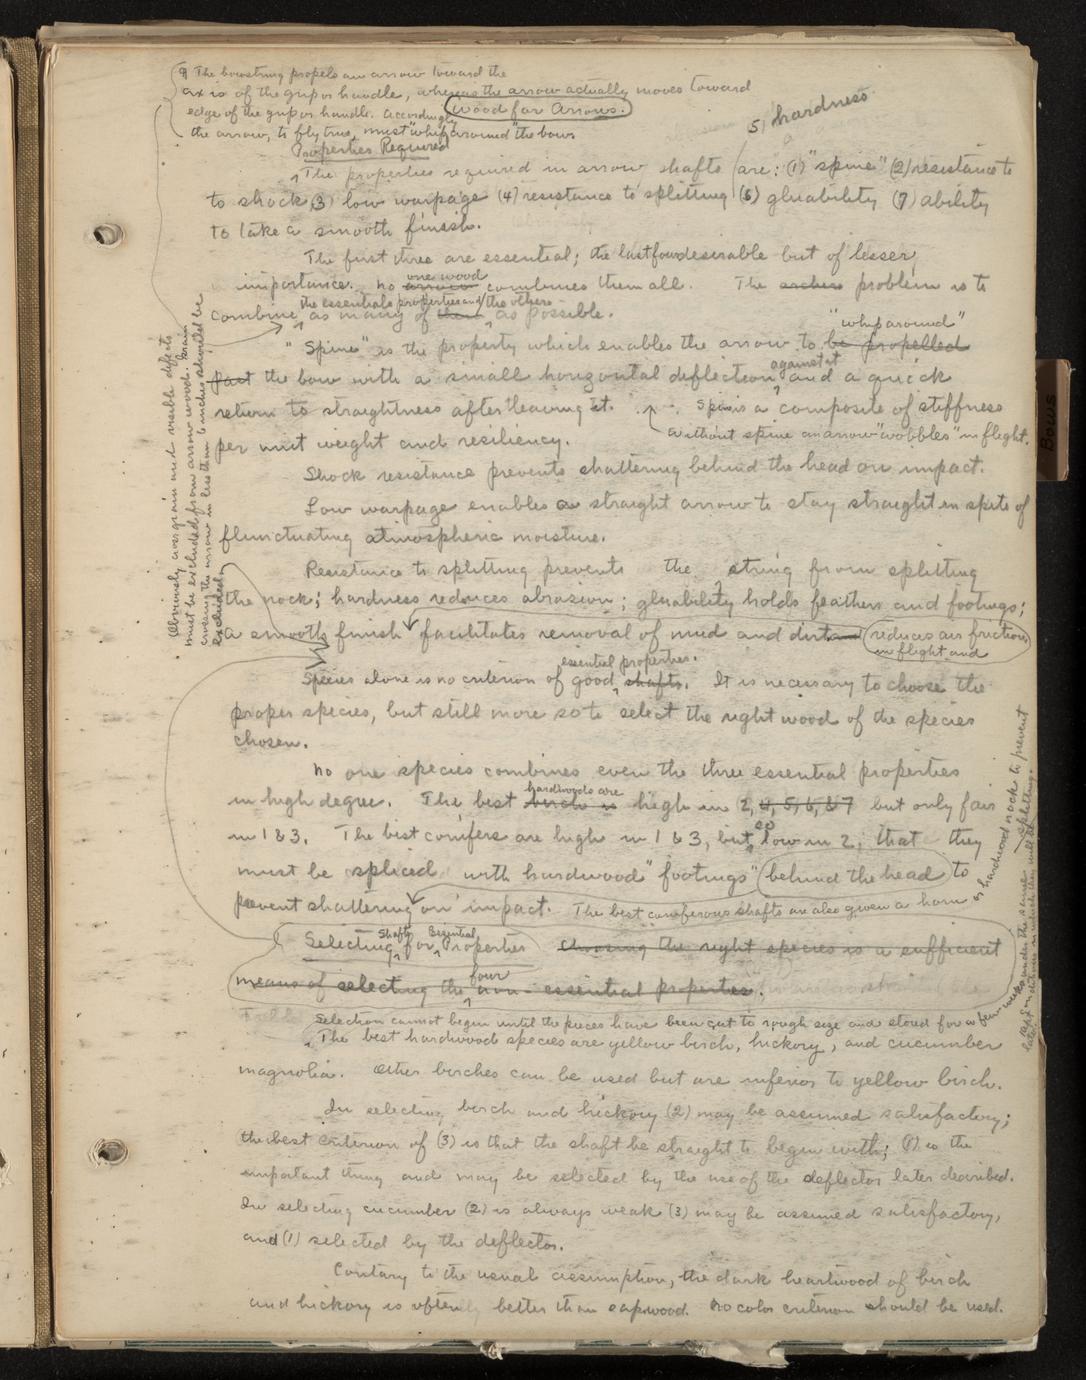 ¶ The bowstring propels an arrow toward the
axis of the grip or handle, whereas the arrow actually moves toward
edge of the grip or handle. Accordingly
the arrow, to fly true, must "whip around" the bows
Wood for Arrows.
5, hardness
Properties Required
The properties required in arrow shafts are: (1) "spine" (2) resistance to
to shock (3) low warpage (4) resistance to splitting (6) gluability (7) ability
to take a smooth finish.
The first three are essential; the last four desirable but of lesser
importance. No arrow one wood combines them all. The archers problem is to
the essentials properties and the others
combine as many of them as possible.
"whip around"
"Spine" is the property which enables the arrow to be propelled
past the bow with a small horizontal deflection against it and a quick
return to straightness after leaving it. Spine is a composite of stiffness
without spine an arrow "wobbles" in flight.
per unit weight and resiliency.
Shock resistance prevents shattering behind the head on impact.
Low warpage enables a straight arrow to stay straight in spite of
flunctuating atmospheric moisture.
Resistance to splitting prevents the string from splitting
the nock; hardness reduces abrasion; gluability holds feathers and footings;
a smooth finish facilitates removal of mud and dirt and reduces air friction
in flight and
essential properties.
Species alone is no criterion of good shafts. It is necessary to choose the
proper species, but still more so to select the right wood of the species
chosen.
No one species combines even the three essential properties
hardwoods are
in high degree. The best birch is high in 2, 4, 5, 6, & 7 but only fair
in 1 & 3. The best conifers are high in 1 & 3, but so low in 2, that they
must be spliced with hardwood "footings" behind the head to
prevent shattering on impact. The best coniferous shafts are also given a horn
or hardwood nock to prevent
splitting.
Selecting Shafts for Essential Properties Choosing the right species is a sufficient
means of selecting the four non-essential properties.
Selection cannot begin until the pieces have been cut to rough size and stored for a few weeks under the same
The best hardwood species are yellow birch, hickory, and cucumber
magnolia. Other birches can be used but are inferior to yellow birch.
In selecting birch and hickory (2) may be assumed satisfactory;
the best criterion of (3) is that the shaft be straight to begin with; (1) is the
important thing and may be selected by the use of the deflector later described.
In selecting cucumber (2) is always weak (3) may be assumed satisfactory,
and (1) selected by the deflector.
Contary to the usual assumption, the dark heartwood of birch
and hickory is often better than sapwood. No color criterion should be used.
Obviously cross grain and visible defects
must be excluded from arrow wood. Grain
crossing the arrow in less than inches should be
excluded.
Bows